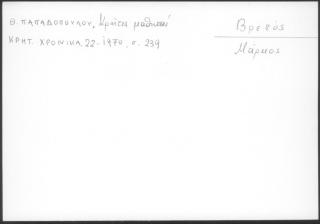 Θ. ΠΑΠΑΔΟΠΟΥΛΟΥ, Κρῆτες μαθηταί
ΚΡΗΤ. ΧΡΟΝΙΚΑ, 22-1970, σ. 239
Βρετός
Μάρκος